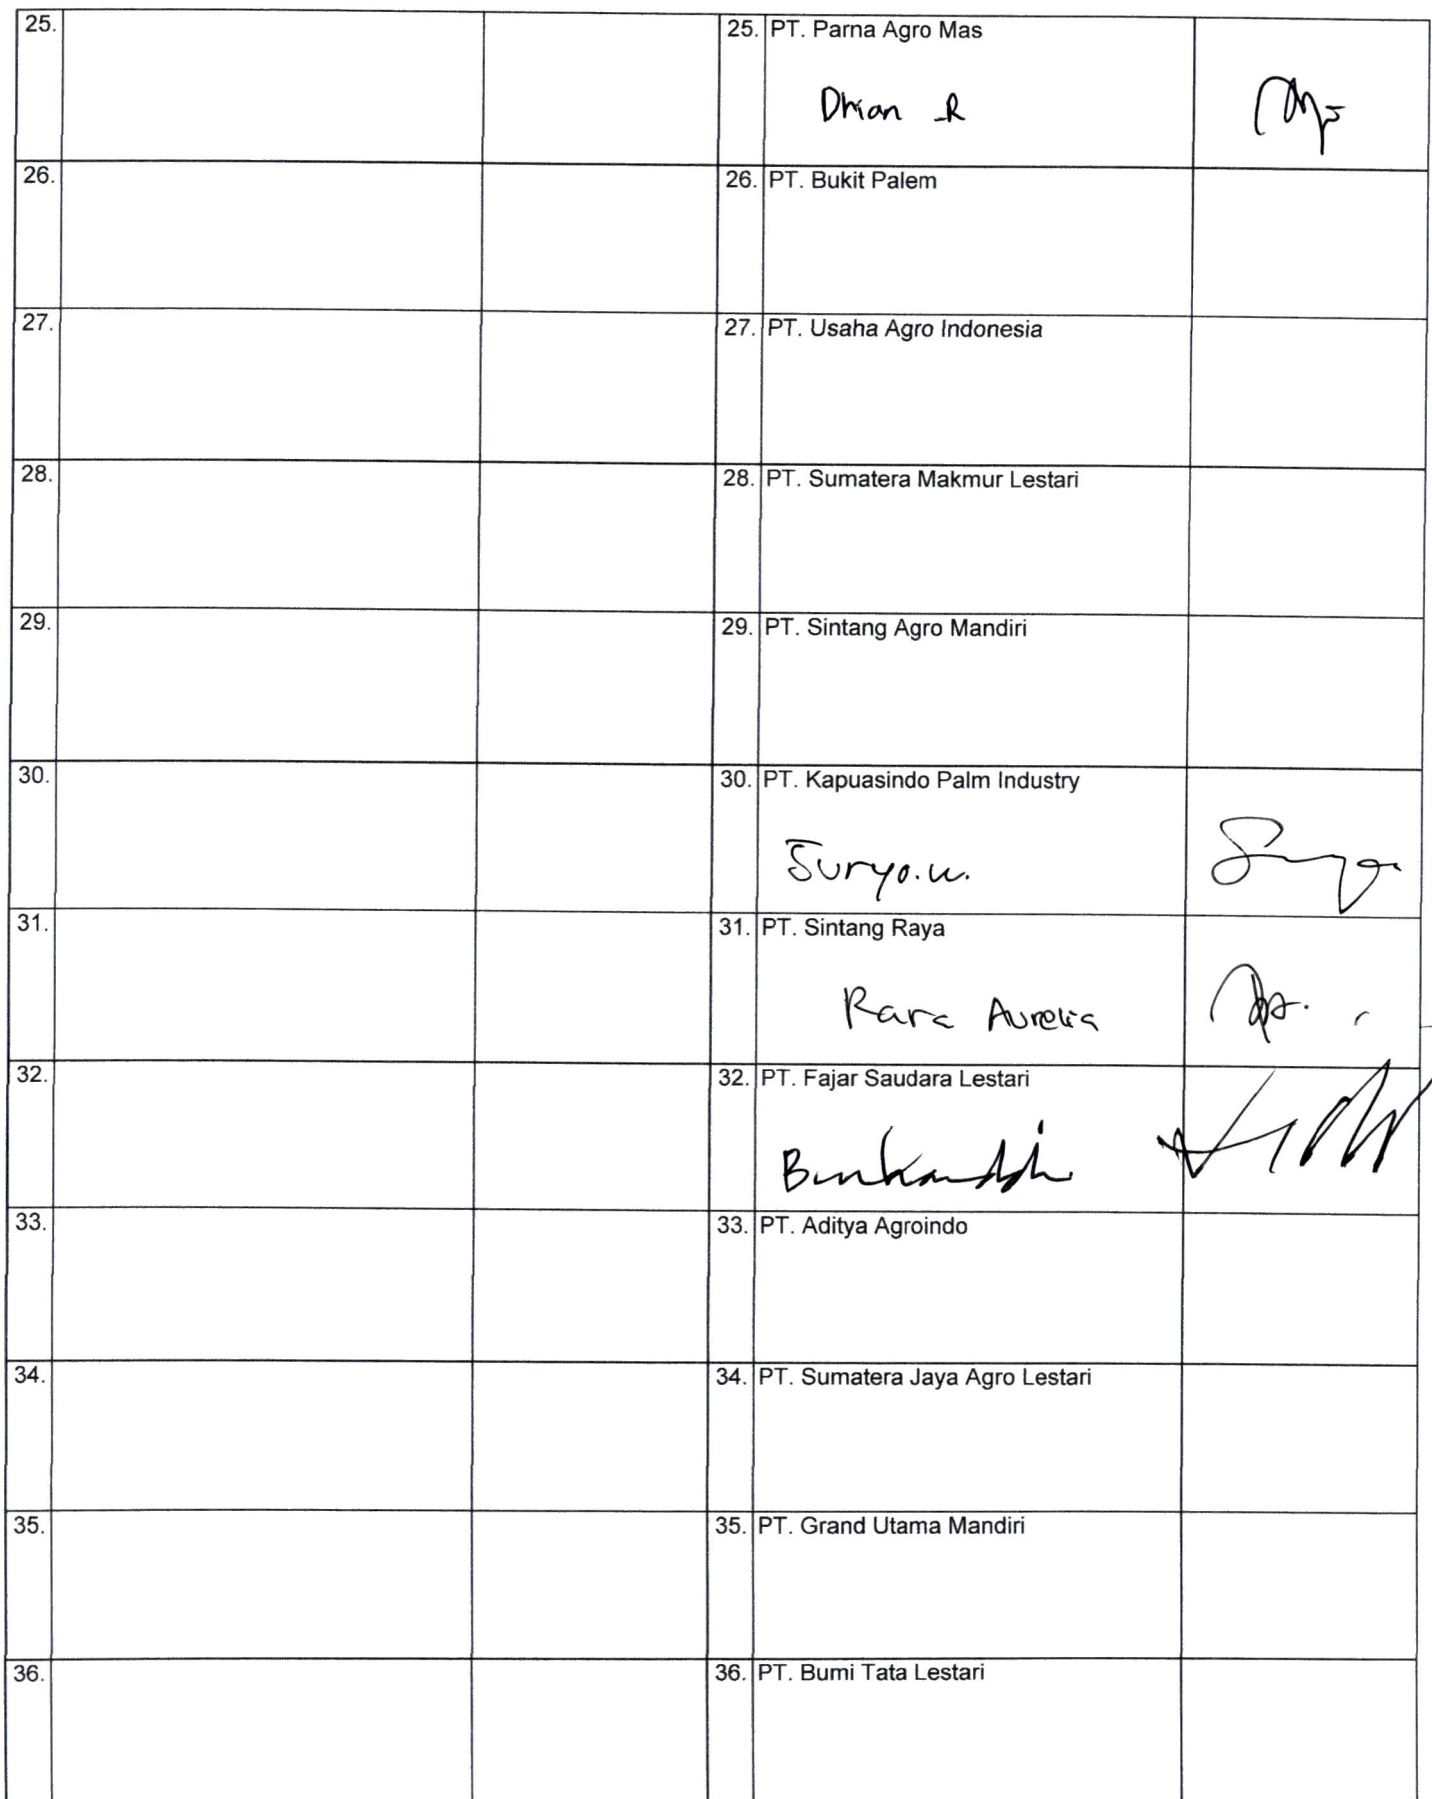 25. 25. PT. Parna Agro Mas
Dhian R
26. 26. PT. Bukit Palem
27. 27. PT. Usaha Agro Indonesia
28. 28. PT. Sumatera Makmur Lestari
29. 29. PT. Sintang Agro Mandiri
30. 30. PT. Kapuasindo Palm Industry
Suryo.w.
31. 31. PT. Sintang Raya
Rara Aurelia
32. 32. PT. Fajar Saudara Lestari
33. 33. PT. Aditya Agroindo
34. 34. PT. Sumatera Jaya Agro Lestari
35. 35. PT. Grand Utama Mandiri
36. 36. PT. Bumi Tata Lestari